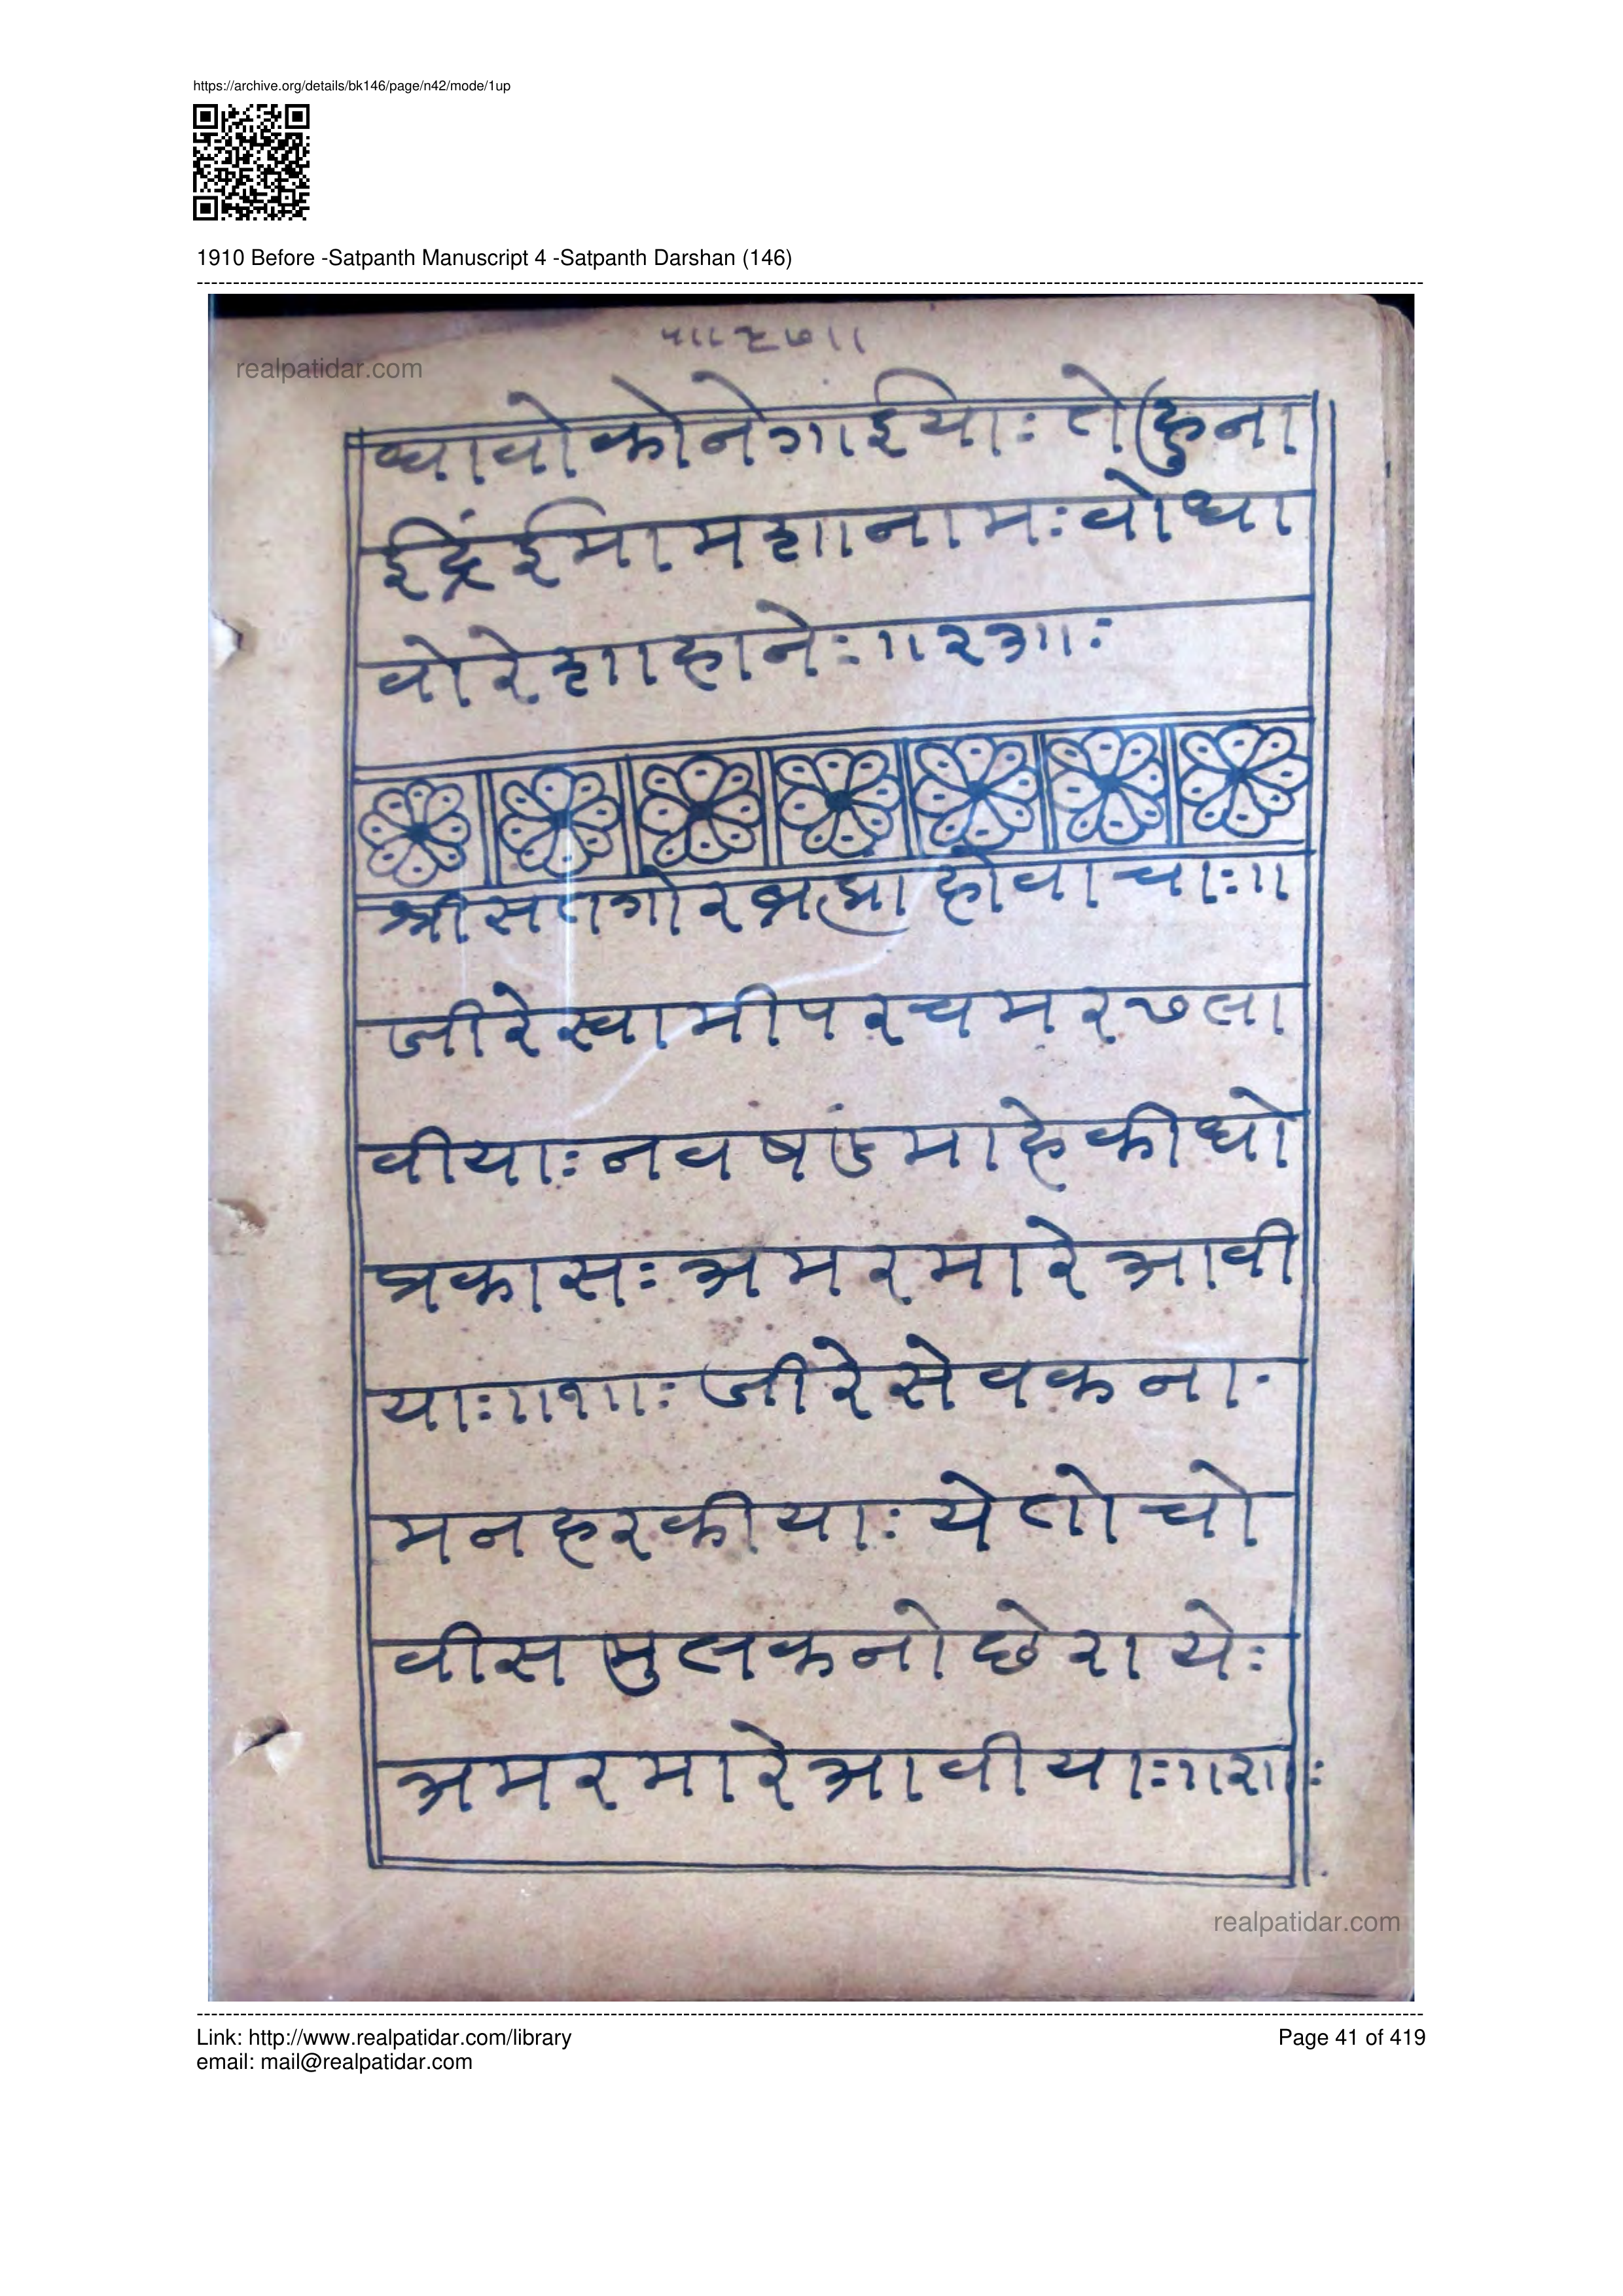 https://archive.org/details/bk146/page/n42/mode/1up
1910 Before -Satpanth Manuscript 4 -Satpanth Darshan (146)
realpatidar.com
ध्यावोकोनेगाईयाः तेहुना
ईंद्रिंईमामशानामः वोधा
वोरेशाहानेः॥२३॥ः
श्रीसतगोरब्रह्मा होवाचाः॥
जीरेस्वामीपरचमरछला
वीयाः नवषंडमाहेकीधो
प्रकासः अमरमारेआवी
याः॥१॥ः जीरेसेवकना
मनहरकीयाः येतोचो
वीसमुलकनोछेरायेः
अमरमारेआवीयाः॥२॥ः
realpatidar.com
Link: http://www.realpatidar.com/library
Page 41 of 419
email: mail@realpatidar.com